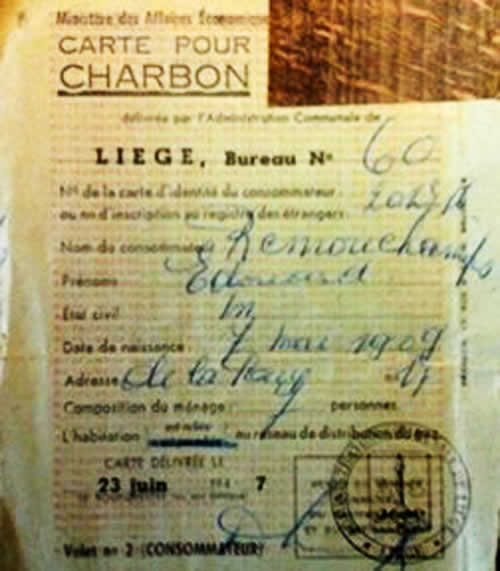 Ministère des Affaires Économiques
CARTE POUR
CHARBON
délivrée par l'Administration Communale de
LIEGE, Bureau Nº 60
Nº de la carte d'identité du consommateur
ou nº d'inscription au registre des étrangers
Nom du consommateur Remouchamps
Prénoms Edouard
État civil m
Date de naissance 7 mai 1909
Adresse de la 17
Composition du ménage personnes
L'habitation au réseau de distribution du gaz
CARTE DÉLIVRÉE LE
23 juin 194 7
Volet nº 2 (CONSOMMATEUR)